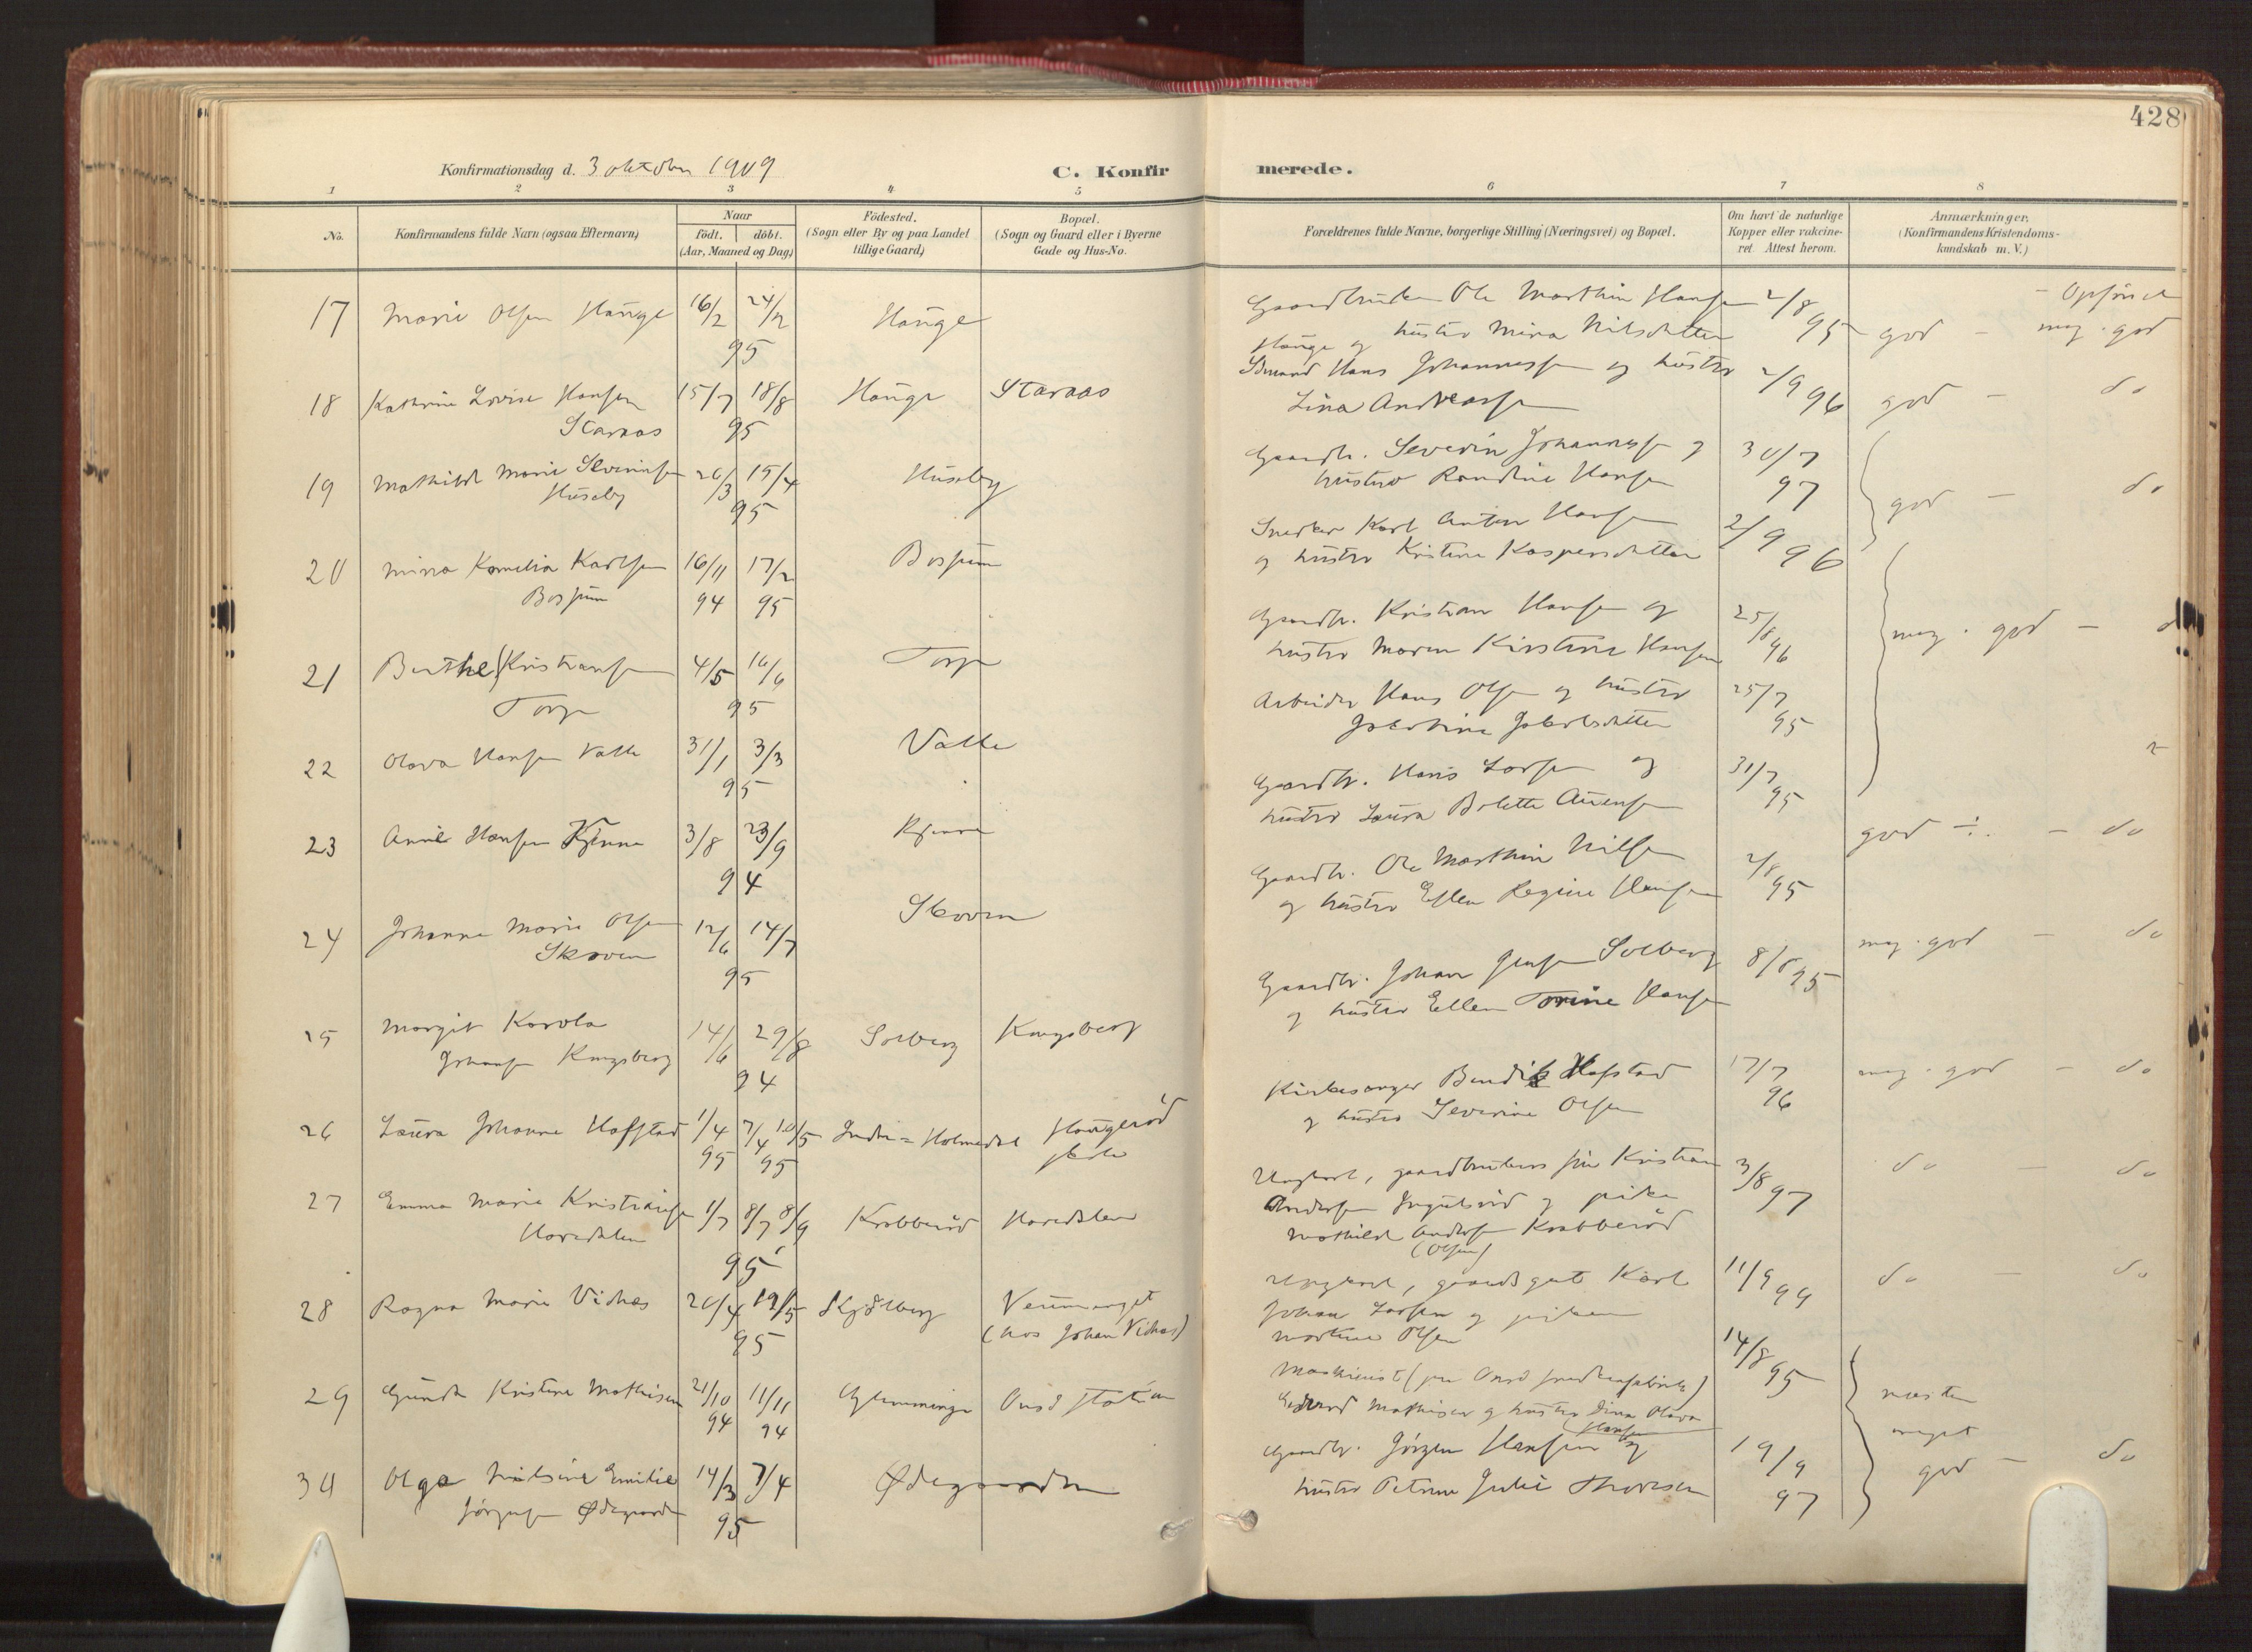 428
Konfirmationsdag d. 3 oktober 1909
C. Konfir
merede.
1 2 3 4 5 6 7 8
No.
Konfirmandens fulde Navn (ogsaa Efternavn)
Naar
födt. döbt.
(Aar, Maaned og Dag)
Födested.
(Sogn eller By og paa Landet
tillige Gaard)
Bopæl.
(Sogn og Gaard eller i Byerne
Gade og Hus-No.
Forældrenes fulde Navne, borgerlige Stilling (Næringsvei) og Bopæl.
Om havt de naturlige
Kopper eller vakcine-
ret Attest herom.
Anmærkninger.
(Konfirmandens Kristendoms-
kundskab m. V.)
17 Marie Olsen Hauge 16/2 24/2 Hauge
95
Gaardbruker Ole Marthin Hansen 2/8 95
Hauge og hustru Mina Nilsdatter god - meg. god
18 Kathrine Lovise Hansen 15/7 18/8 Hauge Staraas
Staraas 95
Hans Johannessen og hustru 2/9 96
Lina Andreassen god - do
19 Mathilde Marie Severinsen 26/3 15/4 Huseby
Huseby 95
Gaardbr. Severin Johannessen og 30/7
hustru Randine Hansen 97 god - do
20 Minna Kornelia Karlsen 16/11 17/2 Bossum
Bossum 94 95
Snedker Karl Anton Hansen 2/9
og hustru Kristine Kaspersdatter 96
21 Berthe Kristiansen 4/5 16/6 Torp
Torp 95
Gaardbr. Kristian Hansen og 25/8
hustru Maren Kirstine Hansen 96 meg. god -
22 Olava Hansen Valle 31/1 3/3 Valle
95
Arbeider Hans Olsen og hustru 25/7
Jakobine Jakobsdatter 95
23 Annie Hansen Kjenne 3/8 23/9 Kjenne
94
Gaardbr. Hans Larsen og 31/7
hustru Laura Bolette Auensen 95
god ÷ - do
24 Johanne Marie Olsen 12/6 14/7 Skoven
Skoven 95
Gaardbr. Ole Marthin Nilsen 2/8
og hustru Ellen Regine Hansen 95
meg. god - do
25 Margit Karola 14/6 29/8 Solberg Kongsberg
Johansen Kongsberg 94
Gaardbr. Johan Jensen Solberg 8/8 95
og hustru Ellen Torine Hansen
meg. god - do
26 Laura Johanne Hofstad 1/4 7/4 10/5 Indre=Holmedal Haugeröd
95 95 skole
Kirkesanger Bendik Hofstad 17/7
og hustru Severine Olsen 96
do - do
27 Emma Marie Kristiansen 1/7 8/7 8/9 Krabberöd Haredalen
Haredalen 95
Ungkarl, gaardbrukers søn Kristian 3/8 97
Andersen Ingulsröd og pike
Mathilde Andersen Krabberöd
(Olsen)
do - do
28 Ragna Marie Vidnes 20/4 19/5 Kjölberg
95 (hos Johan Vidnes)
Ungkarl, gaardsgut Karl 11/9 99
Johan Larsen og piken
Martine Olsen
29 Gunda Kristine Mathisen 21/10 11/11 Glemminge Onsö station
94 94
Maskinist (paa Onsö snedkerfabrik) 14/8 95
Edvard Mathisen og hustru Dina Olava
Hansen
næsten
meget
god - do
30 Olga Nilsine Emilie 14/3 7/4 Ødegaarden
Jörgensen Ødegaarden 95
Gaardbr. Jörgen Hansen og 19/9
hustru Petrine Julie Thoresen 97